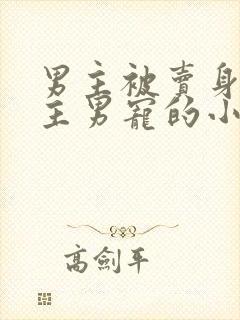 男主被賣身
主男寵的小
高劍平